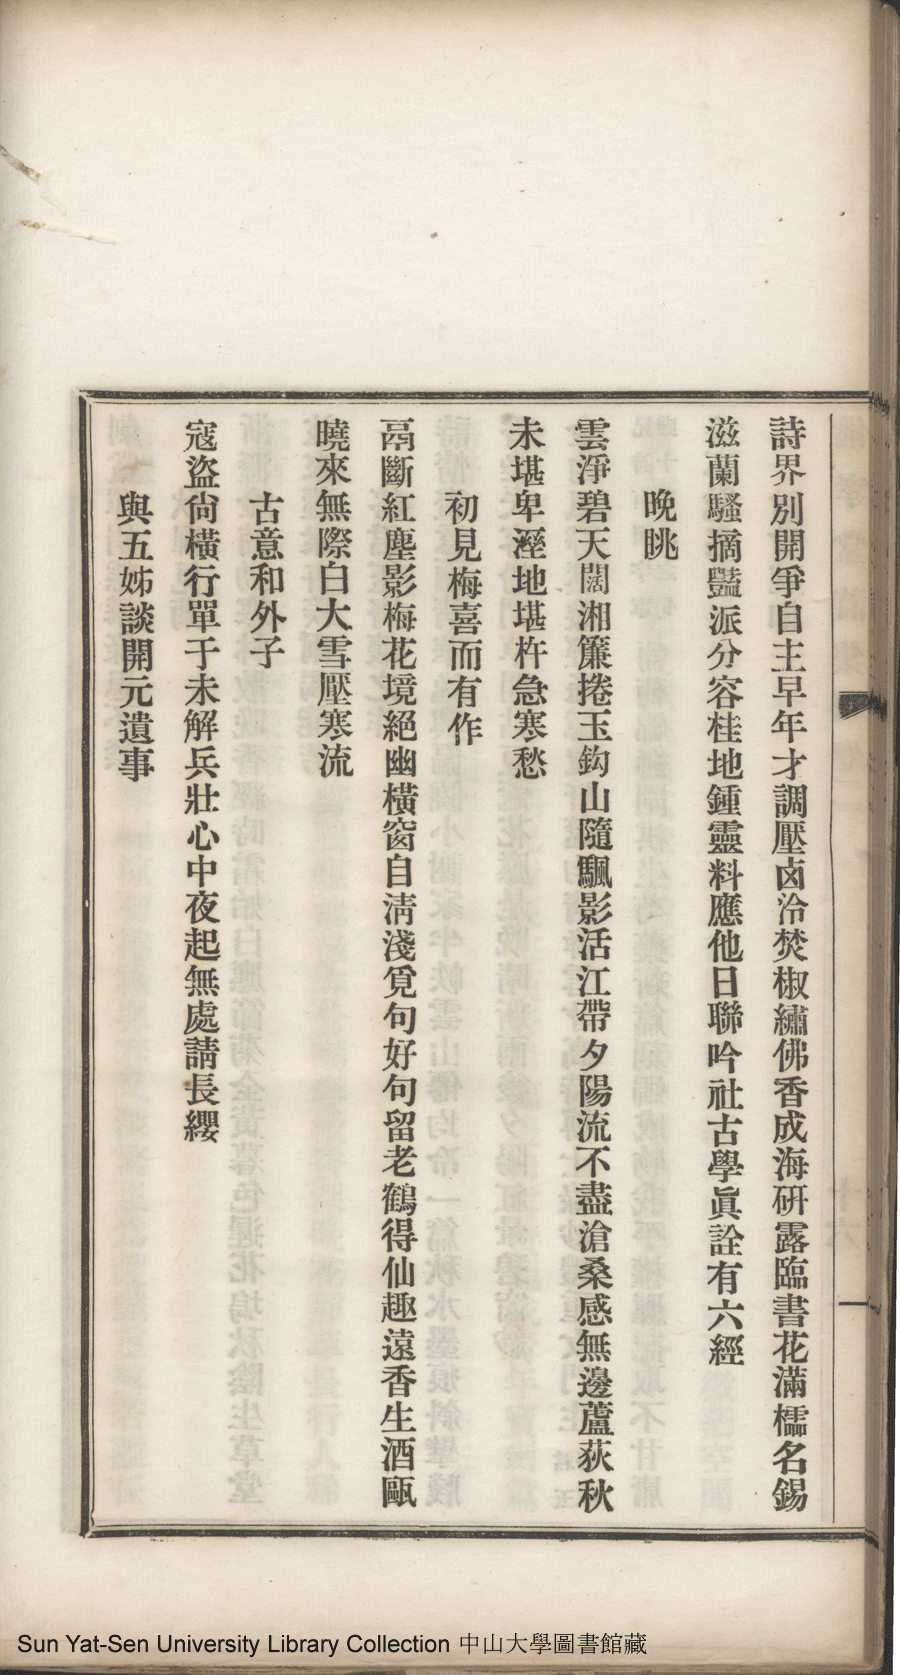 詩界別開爭自主早年才調壓卤泠焚椒繡佛香成海硏露臨書花滿櫺名錫
滋蘭騷摘豔派分容桂地鍾靈料應他日聯吟社古學眞詮有六經
晩眺
雲淨碧天闊湘簾捲玉鈎山隨颿影活江帶夕陽流不盡滄桑感無邊蘆荻秋
未堪卑溼地堪杵急寒愁
初見梅喜而有作
鬲斷紅塵影梅花境絕幽橫窗自淸淺覓句好句留老鶴得仙趣遠香生酒甌
曉來無際白大雪壓寒流
古意和外子
寇盜尙橫行單于未解兵壯心中夜起無處請長纓
與五姊談開元遺事
Sun Yat-Sen University Library Collection 中山大學圖書館藏